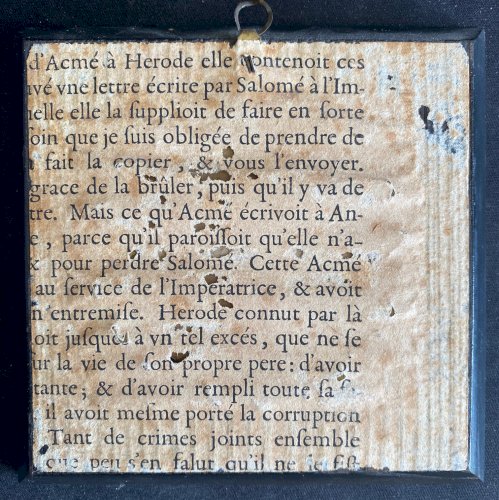 d'Acmé à Herode elle contenoit ces
uvé vne lettre écrite par Salomé à l'Im-
uelle elle la ſupplioit de faire en ſorte
ſoin que je ſuis obligée de prendre de
a fait la copier, & vous l'envoyer.
grace de la brûler, puis qu'il y va de
tre. Mais ce qu'Acmé écrivoit à An-
e, parce qu'il paroiſſoit qu'elle n'a-
& pour perdre Salomé. Cette Acmé
au ſervice de l'Imperatrice, & avoit
n'entremiſe. Herode connut par là
oit juſques à vn tel excés, que ne ſe
ur la vie de ſon propre pere: d'avoir
tante; & d'avoir rempli toute ſa
il avoit meſme porté la corruption
Tant de crimes joints enſemble
que peu s'en falut qu'il ne le fiſt